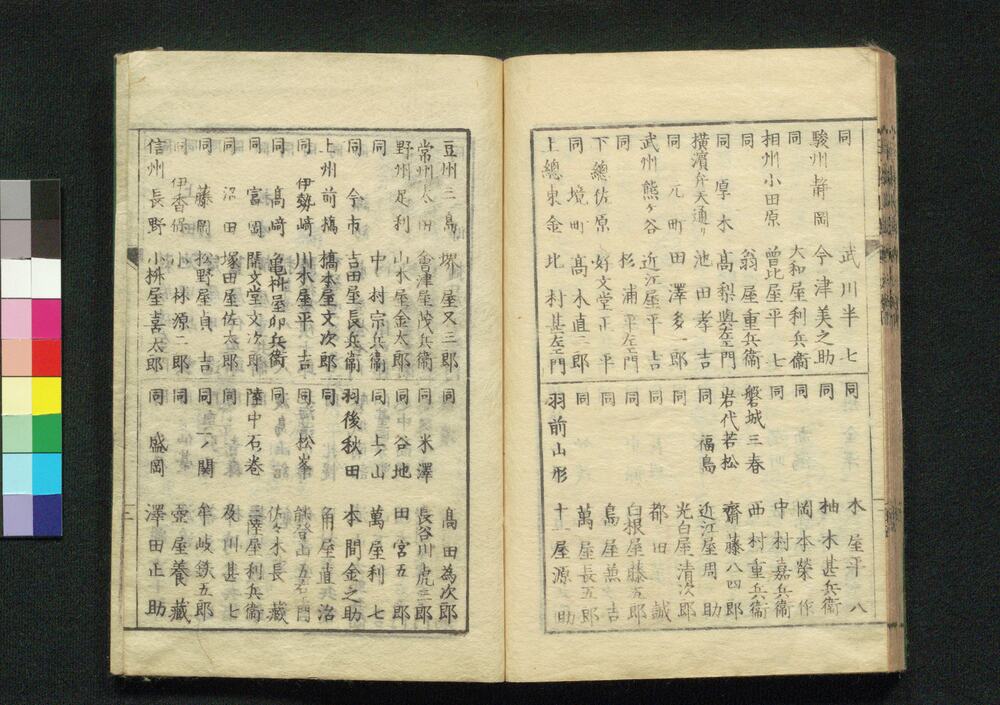 同　武川半七
駿州静岡　今津美之助
同　大和屋利兵衞
相州小田原　曾比屋平七
同　翁屋重兵衞
同　厚木　髙梨與左エ門
橫濱弁天通り　池田孝吉
同　元町　田澤多一郎
武州熊ヶ谷　近江屋平吉
同　杉浦平左エ門
下總佐原　好文堂正平
同　境町　髙木直三郎
上總東金　北村甚左エ門
同　本屋平八
同　柚木甚兵衞
同　岡本榮作
同　中村嘉兵衞
磐城三春　西村重兵衞
岩代若松　齋藤八四郎
同　福島　近江屋周助
同　光白屋清次郎
同　都田誠
同　白根屋藤五郎
同　島屋吉
同　萬屋長五郎
羽前山形　十一屋源助
豆州三島　堺屋又三郎
常州太田　會津屋茂兵衞
野州足利　山水屋金太郎
同　中村宗兵衞
同　今市　吉田屋長兵衞
上州前橋　橋本屋文次郎
同　伊勢﨑　川本屋平吉
同　髙﨑　亀桝屋卯兵衞
同　富岡　開文堂文次郎
同　沼田　塚田屋佐太郎
同　藤岡　松野屋貞吉
同　伊香保　小林源二郎
信州長野　小桝屋喜太郎
同　髙田為次郎
同　米澤　長谷川虎三郎
同　中谷地　田宮五郎
同　上ノ山　萬屋利七
羽後秋田　本間金之助
同　角屋直治
同　松峯　能登山五右エ門
同　佐々木長藏
陸中石巻　三陸屋利兵衞
同　及川甚七
同　一ノ関　牟岐鉄五郎
同　壷屋養藏
同　盛岡　澤田正助